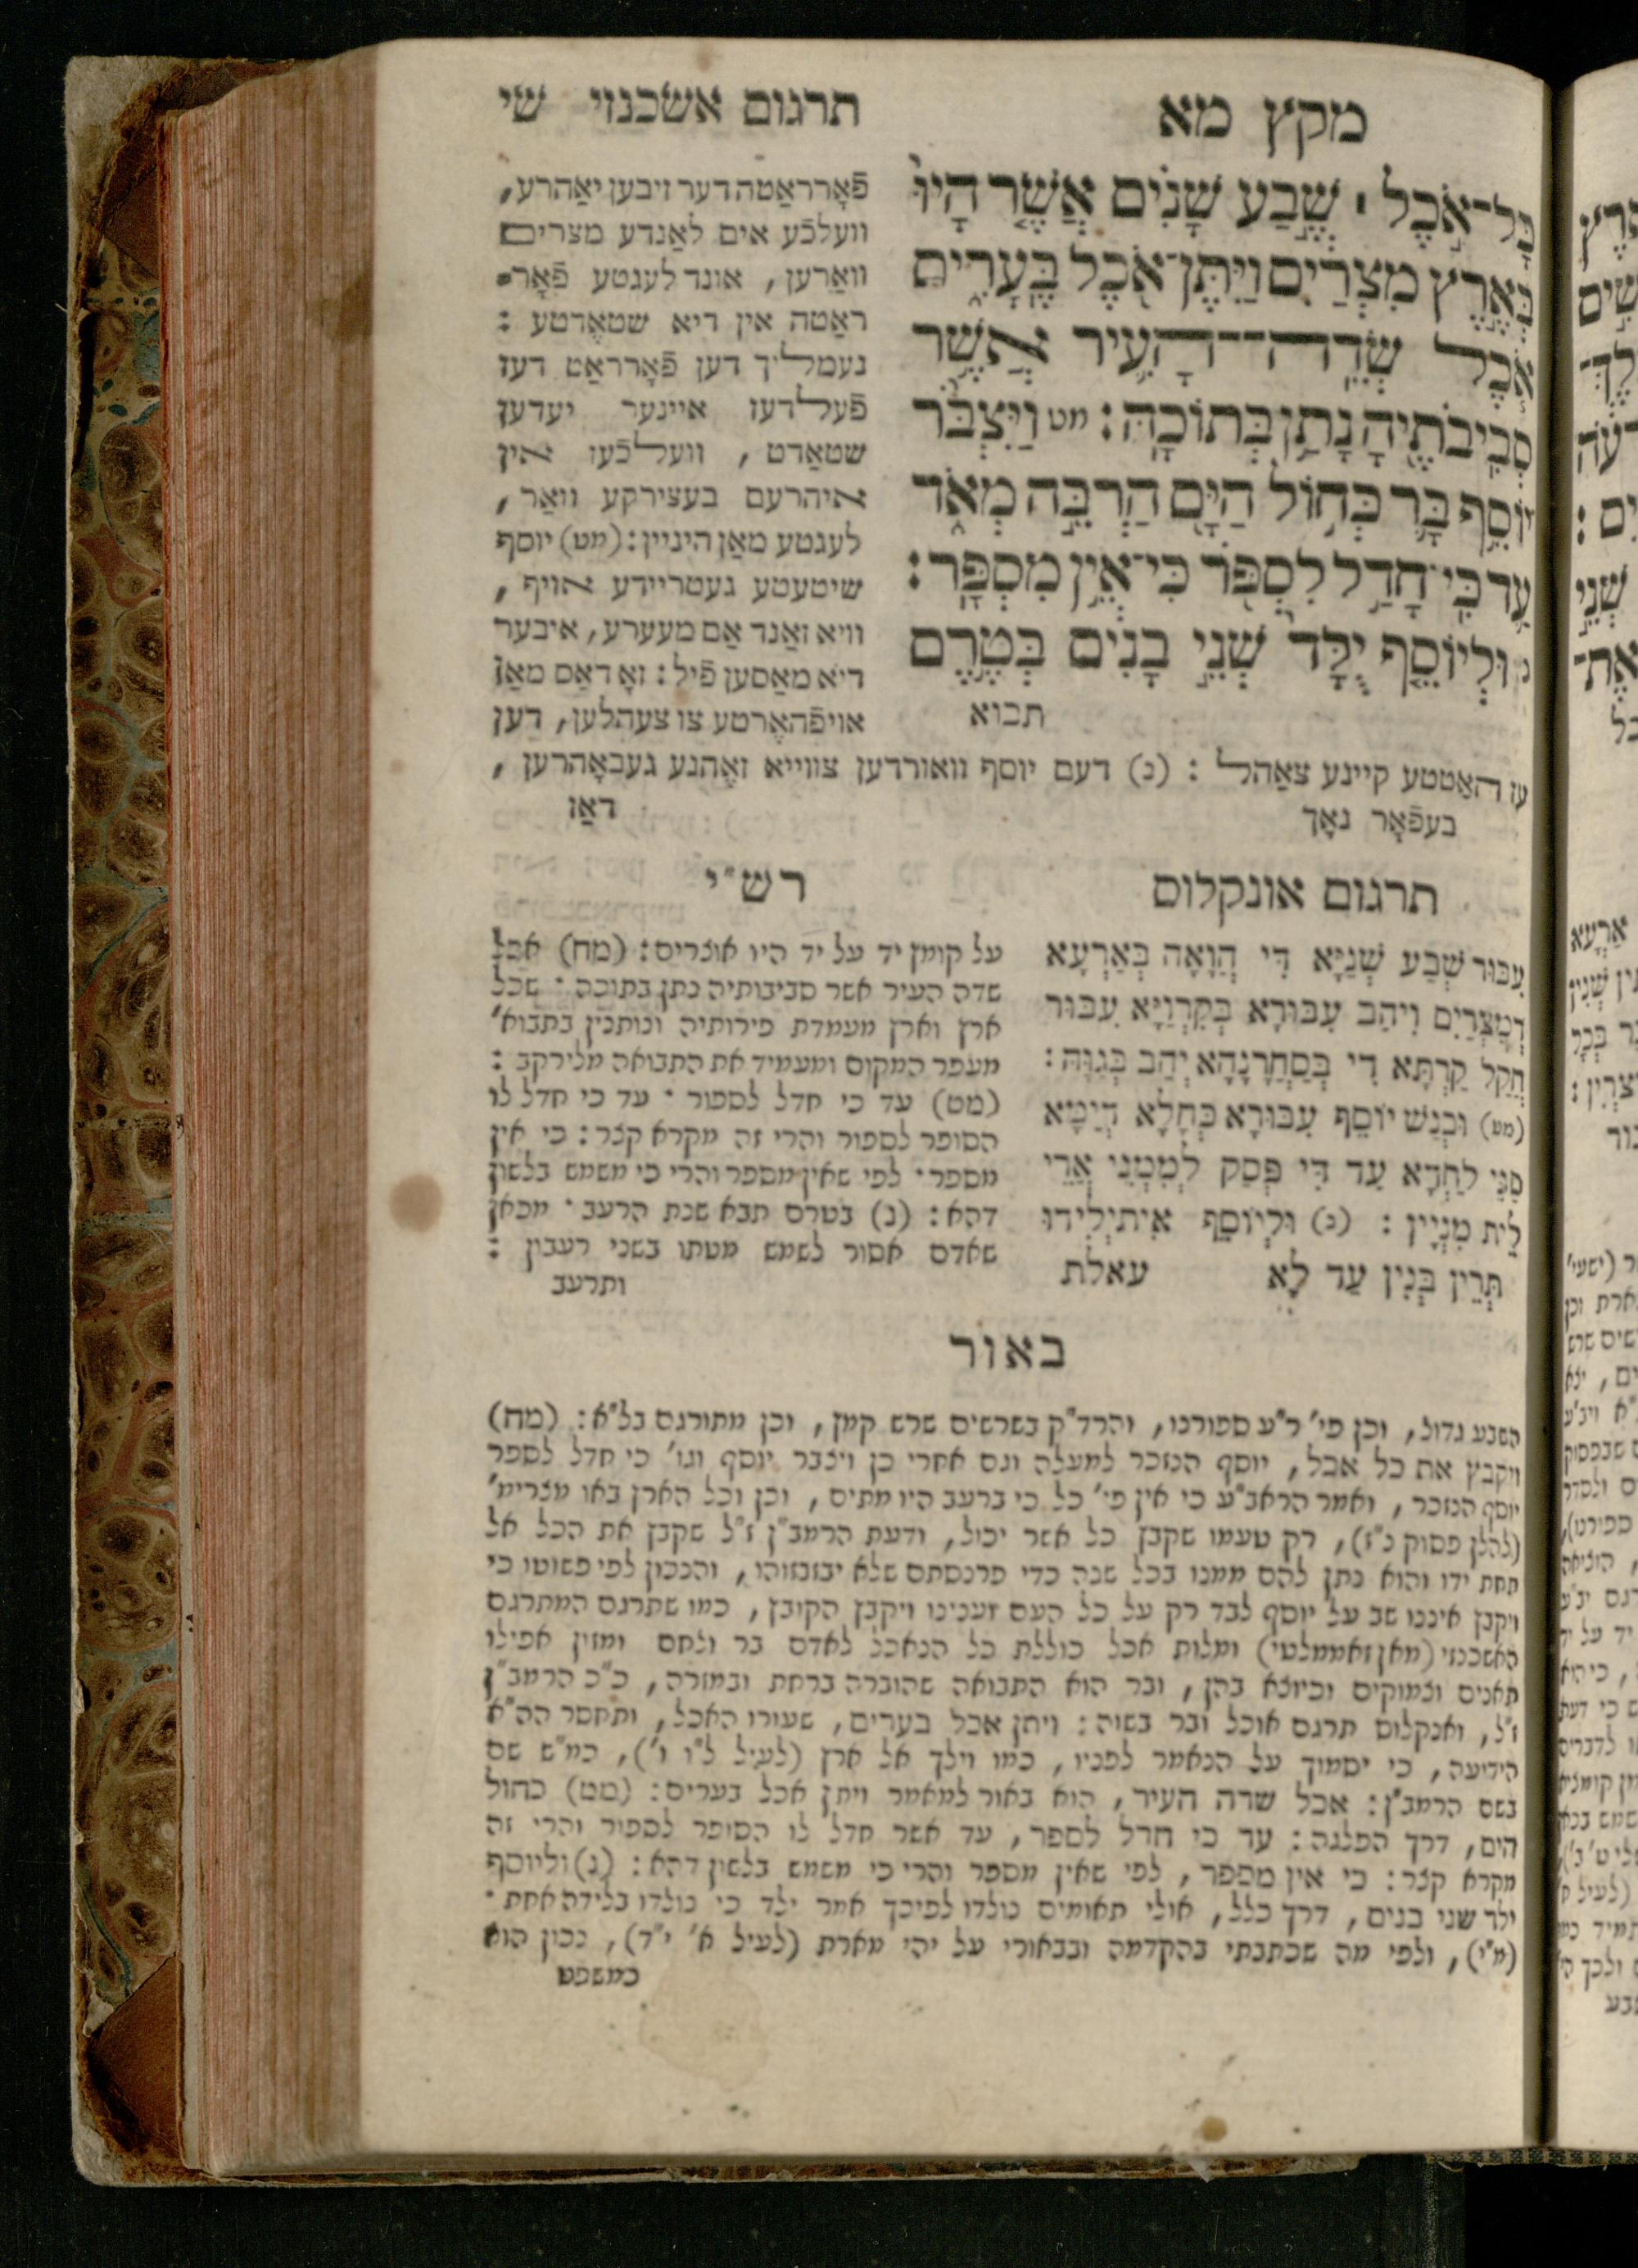 מקץ מא
כָּל־אֹ֣כֶל ׀ שֶׁ֣בַע שָׁנִ֗ים אֲשֶׁ֤ר הָיוּ֙
בְּאֶ֣רֶץ מִצְרַ֔יִם וַיִּתֶּן־אֹ֖כֶל בֶּעָרִ֑ים
אֹ֧כֶל שְׂדֵֽה־הָעִ֛יר אֲשֶׁ֥ר
סְבִֽיבֹתֶ֖יהָ נָתַ֥ן בְּתוֹכָֽהּ׃ מט וַיִּצְבֹּ֨ר
יוֹסֵ֥ף בָּ֛ר כְּח֥וֹל הַיָּ֖ם הַרְבֵּ֣ה מְאֹ֑ד
עַ֛ד כִּי־חָדַ֥ל לִסְפֹּ֖ר כִּי־אֵ֥ין מִסְפָּֽר׃
נ וּלְיוֹסֵ֤ף יֻלַּד֙ שְׁנֵ֣י בָנִ֔ים בְּטֶ֥רֶם
תבוא
תרגום אשכנזי שי
פֿאָרראַטה דער זיבען יאַהרע,
וועלכֿע אים לאַנדע מצרים
וואַרען, אונד לעגטע פֿאָר־
ראַטה אין דיא שטאֶדטע :
נעמליך דען פֿאָרראַט דעז
פֿעלדעז איינער יעדען
שטאַדט, וועלכֿעז אין
איהרעם בעצירקע וואַר,
לעגטע מאַן היניין: (מט) יוסף
שיטעטע געטריידע אויף,
וויא זאַנד אַם מעערע, איבער
דיא מאַסען פֿיל : זאָ דאַס מאַן
אויפֿהאֶרטע צו צעהלען, דען
עז האַטטע קיינע צאַהל : (נ) דעם יוסף וואורדען צווייא זאֶהנע געבאָהרען,
בעפֿאָר נאָך
דאַז
תרגום אונקלוס
עִבּוּר שְׁבַע שְׁנַיָּא דִּי הֲוָאָה בְּאַרְעָא
דְמִצְרַיִם וִיהַב עִבּוּרָא בְּקִרְוַיָּא עִבּוּר
חֲקַל קַרְתָּא דִּי בְּסַחֲרָנָהָא יְהַב בְּגַוָּהּ :
(מט) וּכְנַשׁ יוֹסֵף עִבּוּרָא כְּחָלָא דְיַמָּא
סַגִּי לַחְדָא עַד דִּי פְּסַק לְמִמְנֵי אֲרֵי
לֵית מִנְיָין : (נ) וּלְיוֹסֵף אִיתְיְלִידוּ
תְּרֵין בְּנִין עַד לָא
עאלת
רש"י
על קומץ יד על יד היו אוצרים : (מח) אכל
שדה העיר אשר סביבותיה נתן בתוכה · שכל
ארץ וארץ מעמדת פירותיה ונותנין בתבוא'
מעפר המקום ומעמיד את התבואה מלירקב :
(מט) עד כי חדל לספור · עד כי חדל לו
הסופר לספור והרי זה מקרא קצר : כי אין
מספר · לפי שאין מספר והרי כי משמש בלשון
דהא : (נ) בטרם תבא שנת הרעב · מכאן
שאדם אסור לשמש מטתו בשני רעבון :
ותרעב
באור
השבע גדול, וכן פי' ר"ע ספורנו, והרד"ק בשרשים שרש קמץ, וכן מתורגם בל"א : (מח)
ויקבץ את כל אכל, יוסף הנזכר למעלה וגם אחרי כן ויצבר יוסף וגו' כי חדל לספר
יוסף הנזכר, ואמר הראב"ע כי אין פי' כל כי ברעב היו מתים, וכן וכל הארץ באו מצרימ'
(להלן פסוק נ"ז), רק טעמו שקבץ כל אשר יכול, ודעת הרמב"ן ז"ל שקבץ את הכל אל
תחת ידו והוא נתן להם ממנו בכל שנה כדי פרנסתם שלא יבזבזוהו, והנכון לפי פשוטו כי
ויקבץ איננו שב על יוסף לבד רק על כל העם וענינו ויקבץ הקובץ, כמו שתרגם המתרגם
האשכנזי (מאן זאממלטי) ומלות אכל כוללת כל הנאכל לאדם בר ולחם ומזון אפילו
תאנים וצמוקים וכיוצא בהן, ובר הוא התבואה שהוברה ברחת ובמזרה, כ"כ הרמב"ן
ז"ל, ואנקלוס תרגם אוכל ובר בשוה : ויתן אכל בערים, שעורו האכל, ותחסר הה"א
הידיעה, כי יסמוך על הנאמר לפניו, כמו וילך אל ארץ (לעיל ל"ו ו'), כמ"ש שם
בשם הרמב"ן : אכל שדה העיר, הוא באור למאמר ויתן אכל בערים : (מט) כחול
הים, דרך הפלגה : עד כי חדל לספר, עד אשר חדל לו הסופר לספור והרי זה
מקרא קצר : כי אין מספר, לפי שאין מספר והרי כי משמש בלשון דהא : (נ) וליוסף
ילד שני בנים, דרך כלל, אולי תאומים נולדו לפיכך אמר ילד כי נולדו בלידה אחת ·
(מ"י), ולפי מה שכתבתי בהקדמה ובבאורי על יהי מארת (לעיל א' י"ד), נכון הוא
כמשפט